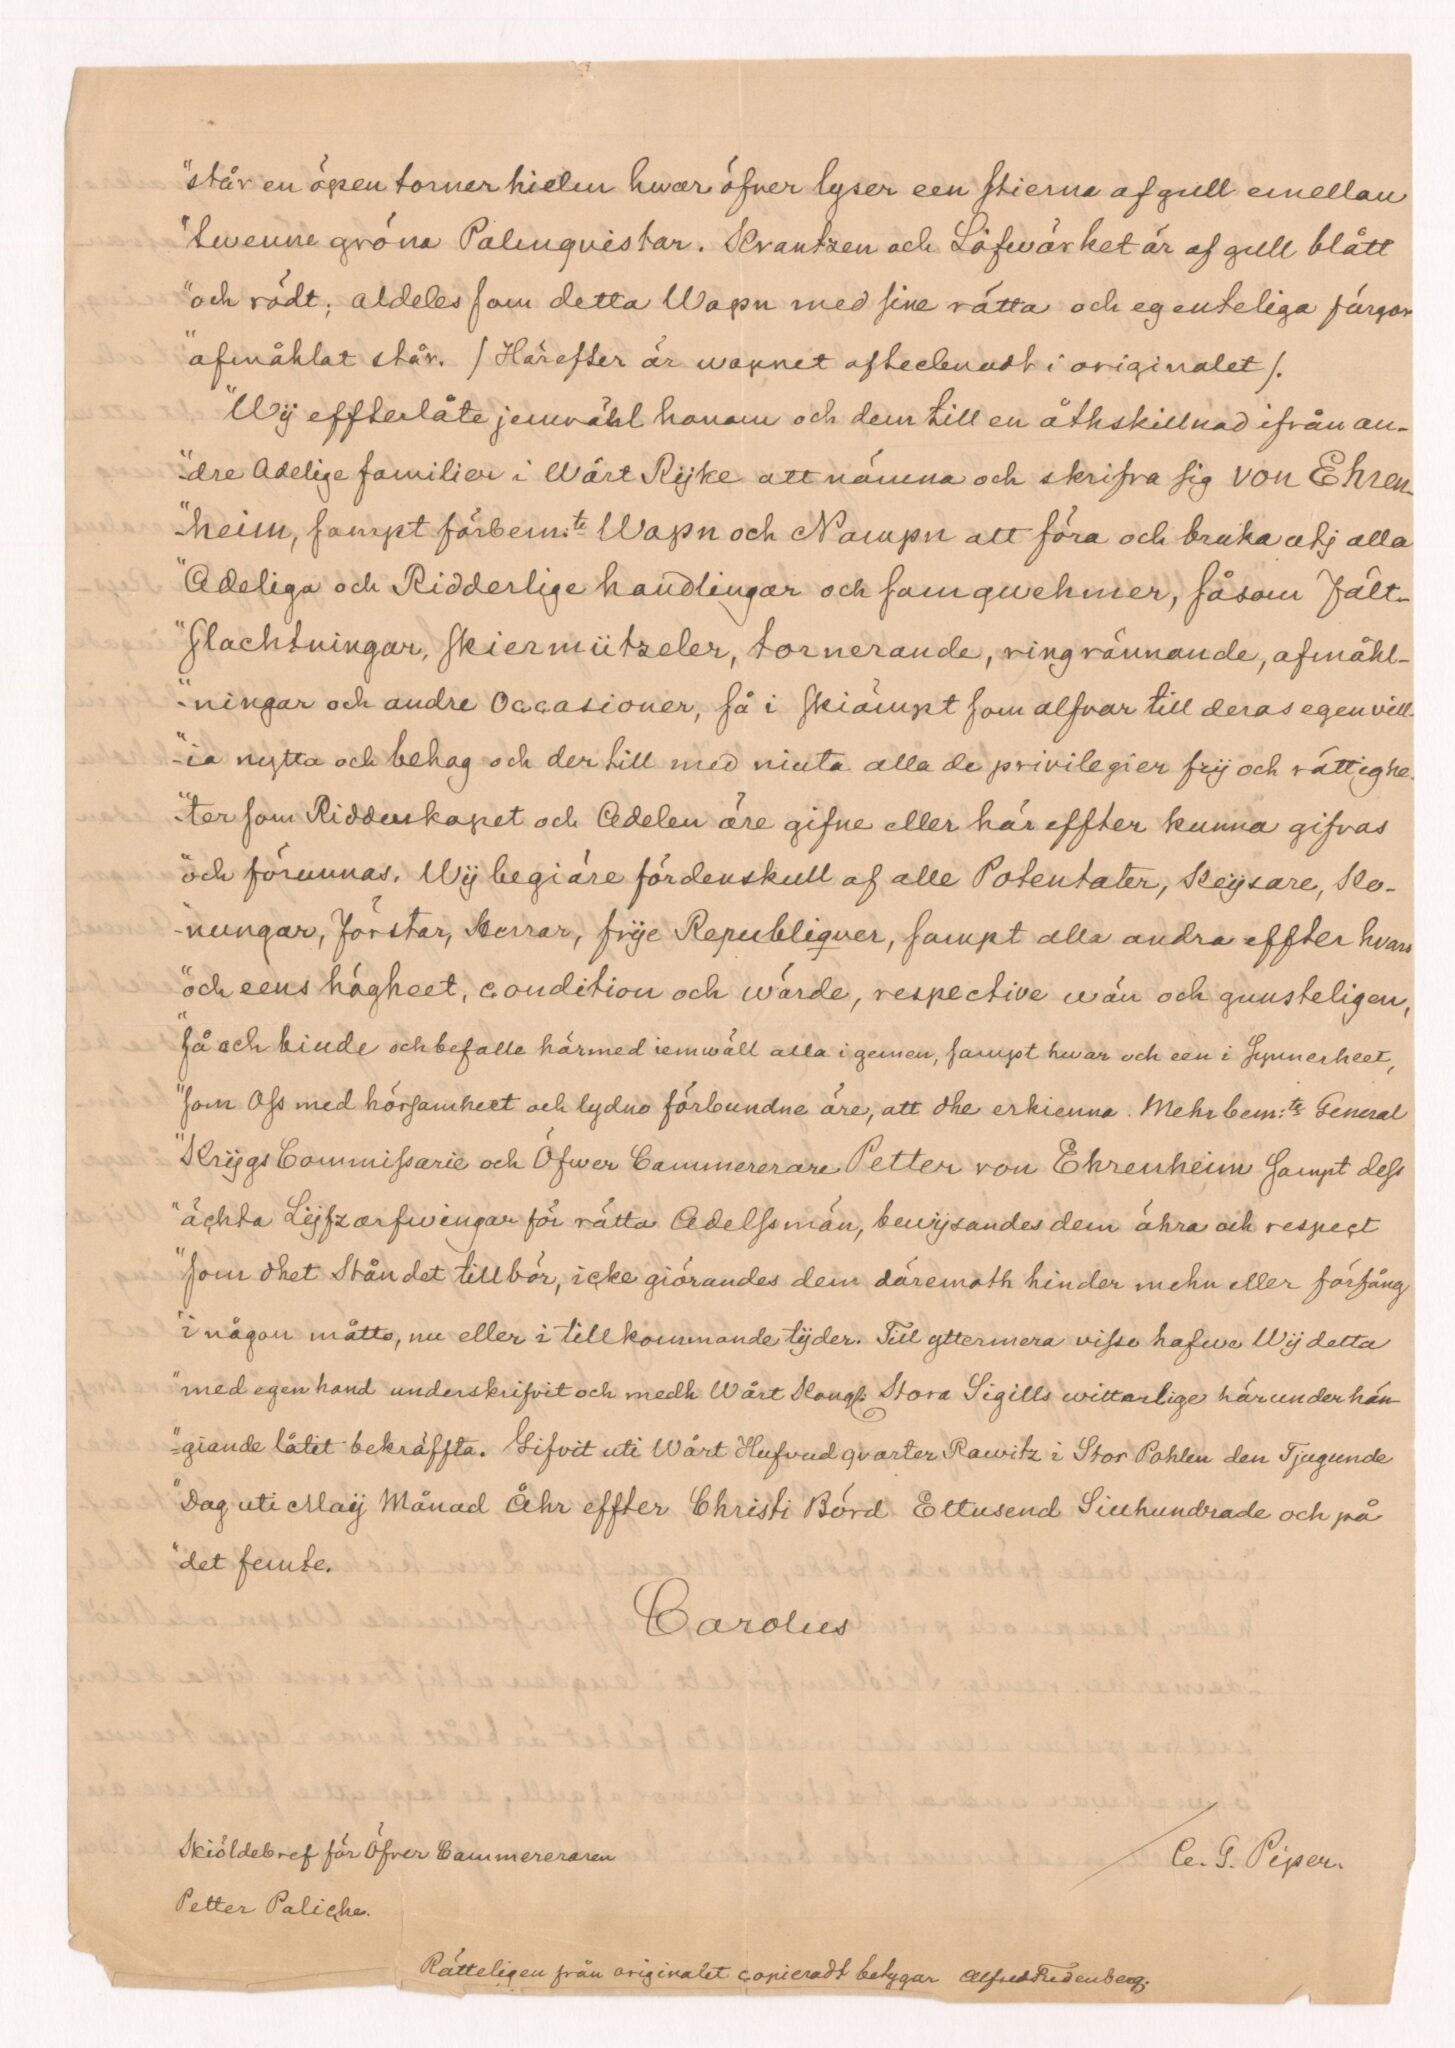 "står en öpen torner hielm hwar öfver lyser een stierna af gull emellan
"twenne gröna Palmqvistar. Krantzen och Löfwärket är af gull blått
"och rödt; aldeles som detta Wapn med sine rätta och egenteliga färgor
"afmåhlat står. / Härefter är wapnet aftecknadt i originalet /.
"Wÿ effterlåte jemwähl honom och dem till en åthskillnad ifrån an-
"-dre Adelige familier i Wårt Rÿke att nämna och skrifva sig von Ehren-
"-heim, sampt förbem:te Wapn och Nampn att föra och bruka utj alla
"Adeliga och Ridderlige handlingar och samqwehmer, såsom Fält-
"slachtningar, skiermützeler, tornerande, ringrännande, afmåhl-
"-ningar och andre Occasioner, så i skiämpt som alfvar till deras egen vill-
"-ia nytta och behag och der till med niuta alla de privilegier frÿ och rättighe-
"-ter som Ridderskapet och Adelen äre gifne eller här effter kunna gifvas
"och förunnas. Wÿ begiäre fördenskull af alle Potentater, Keÿsare, Ko-
"-nungar, Förstar, Herrar, frÿe Republiquer, sampt alla andra effter hvars
"och eens högheet, condition och wärde, respective wän och gunsteligen,
"så och biude och befalle härmed iemwäll alla i gemen, sampt hwar och een i Synnerheet,
"som Oss med hörsamheet och lydno förbundne äre, att dhe erkienna Mehrbem:te General
"Krÿgs Commissarie och Öfwer Cammererare Petter von Ehrenheim sampt dess
"ächta Lÿfzarfwingar för rätta Adelssmän, bewÿsandes dem ähra och respect
"som dhet Ståndet tillbör, icke giörandes dem däremoth hinder mehn eller förfång
"i någon måtto, nu eller i tillkommande tÿder. Till yttermera visso hafwe Wÿ detta
"med egen hand underskrifvit och medh Wårt Kongl: Stora Sigills witterlige härunder hän-
"-giande låtit bekräffta. Gifvit uti Wårt Hufvud qvarter Rawitz i Stor Pohlen den Tjugunde
"Dag uti Maÿ Månad Åhr effter Christi Börd Ettusend Siuhundrade och på
"det femte.
Carolus
Skiöldebref för Öfver Cammereraren
Petter Paliche.
/ C. G. Piper.
Rätteligen från originalet copieradt betygar Alfred Fredenberg.